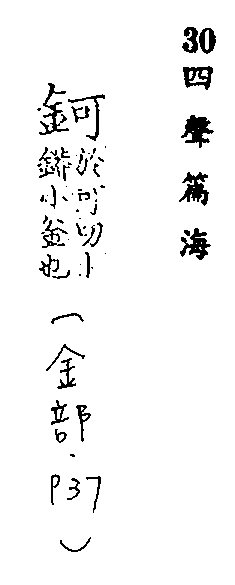 30四聲篇海
鈳
於可切卜
䥈小釜也
(金部.P37)